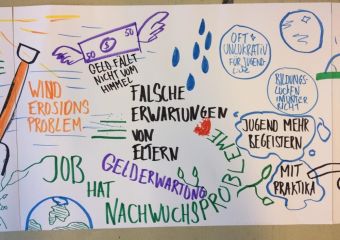 50 $ 50
GELD FÄLLT
NICHT VOM
HIMMEL
WIND
EROSIONS
PROBLEM
FALSCHE
ERWARTUNGEN
VON
ELTERN
OFT
UNLUKRATIV
FÜR JUGEND-
LICHE
BILDUNGS-
LÜCKEN
NICHT
JUGEND MEHR
BEGEISTERN
MIT
PRAKTIKA
GELDERWARTUNG
JOB
HAT
NACHWUCHSPROBLEME